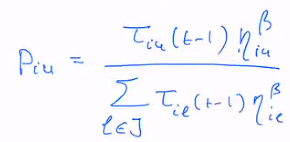 P_{iu} = \frac{\tau_{iu}(t-1) \eta_{iu}^{\beta}}{\sum_{l \in J} \tau_{il}(t-1) \eta_{il}^{\beta}}